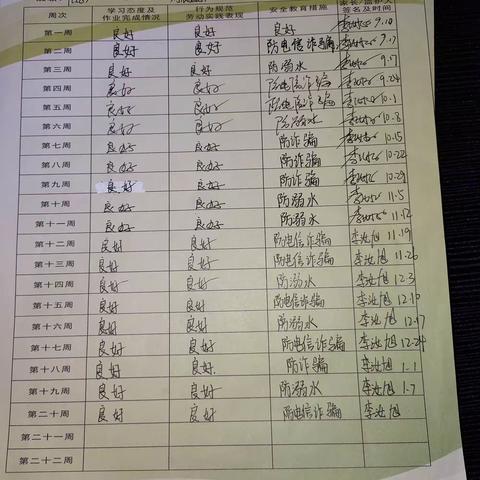 周次 学习态度及作业完成情况 行为规范劳动实践表现 安全教育措施 签名及时间
第一周 良好 良好 良好 9.10
第二周 良好 良好 防电信诈骗 9.17
第三周 良好 良好 防溺水 9.17
第四周 良好 良好 防电信诈骗 9.24
第五周 良好 良好 防电信诈骗 10.1
第六周 良好 良好 防溺水 10.8
第七周 良好 良好 防诈骗 10.15
第八周 良好 良好 防诈骗 10.22
第九周 良好 良好 防诈骗 10.29
第十周 良好 良好 防溺水 11.5
第十一周 良好 良好 防溺水 11.12
第十二周 良好 良好 防电信诈骗 李汝旭 11.19
第十三周 良好 良好 防电信诈骗 李汝旭 11.26
第十四周 良好 良好 防溺水 李汝旭 12.3
第十五周 良好 良好 防电信诈骗 李汝旭 12.10
第十六周 良好 良好 防溺水 李汝旭 12.17
第十七周 良好 良好 防电信诈骗 李汝旭 12.24
第十八周 良好 良好 防诈骗 李汝旭 1.1
第十九周 良好 良好 防溺水 李汝旭 1.7
第二十周 良好 良好 防电信诈骗 李汝旭
第二十一周
第二十二周